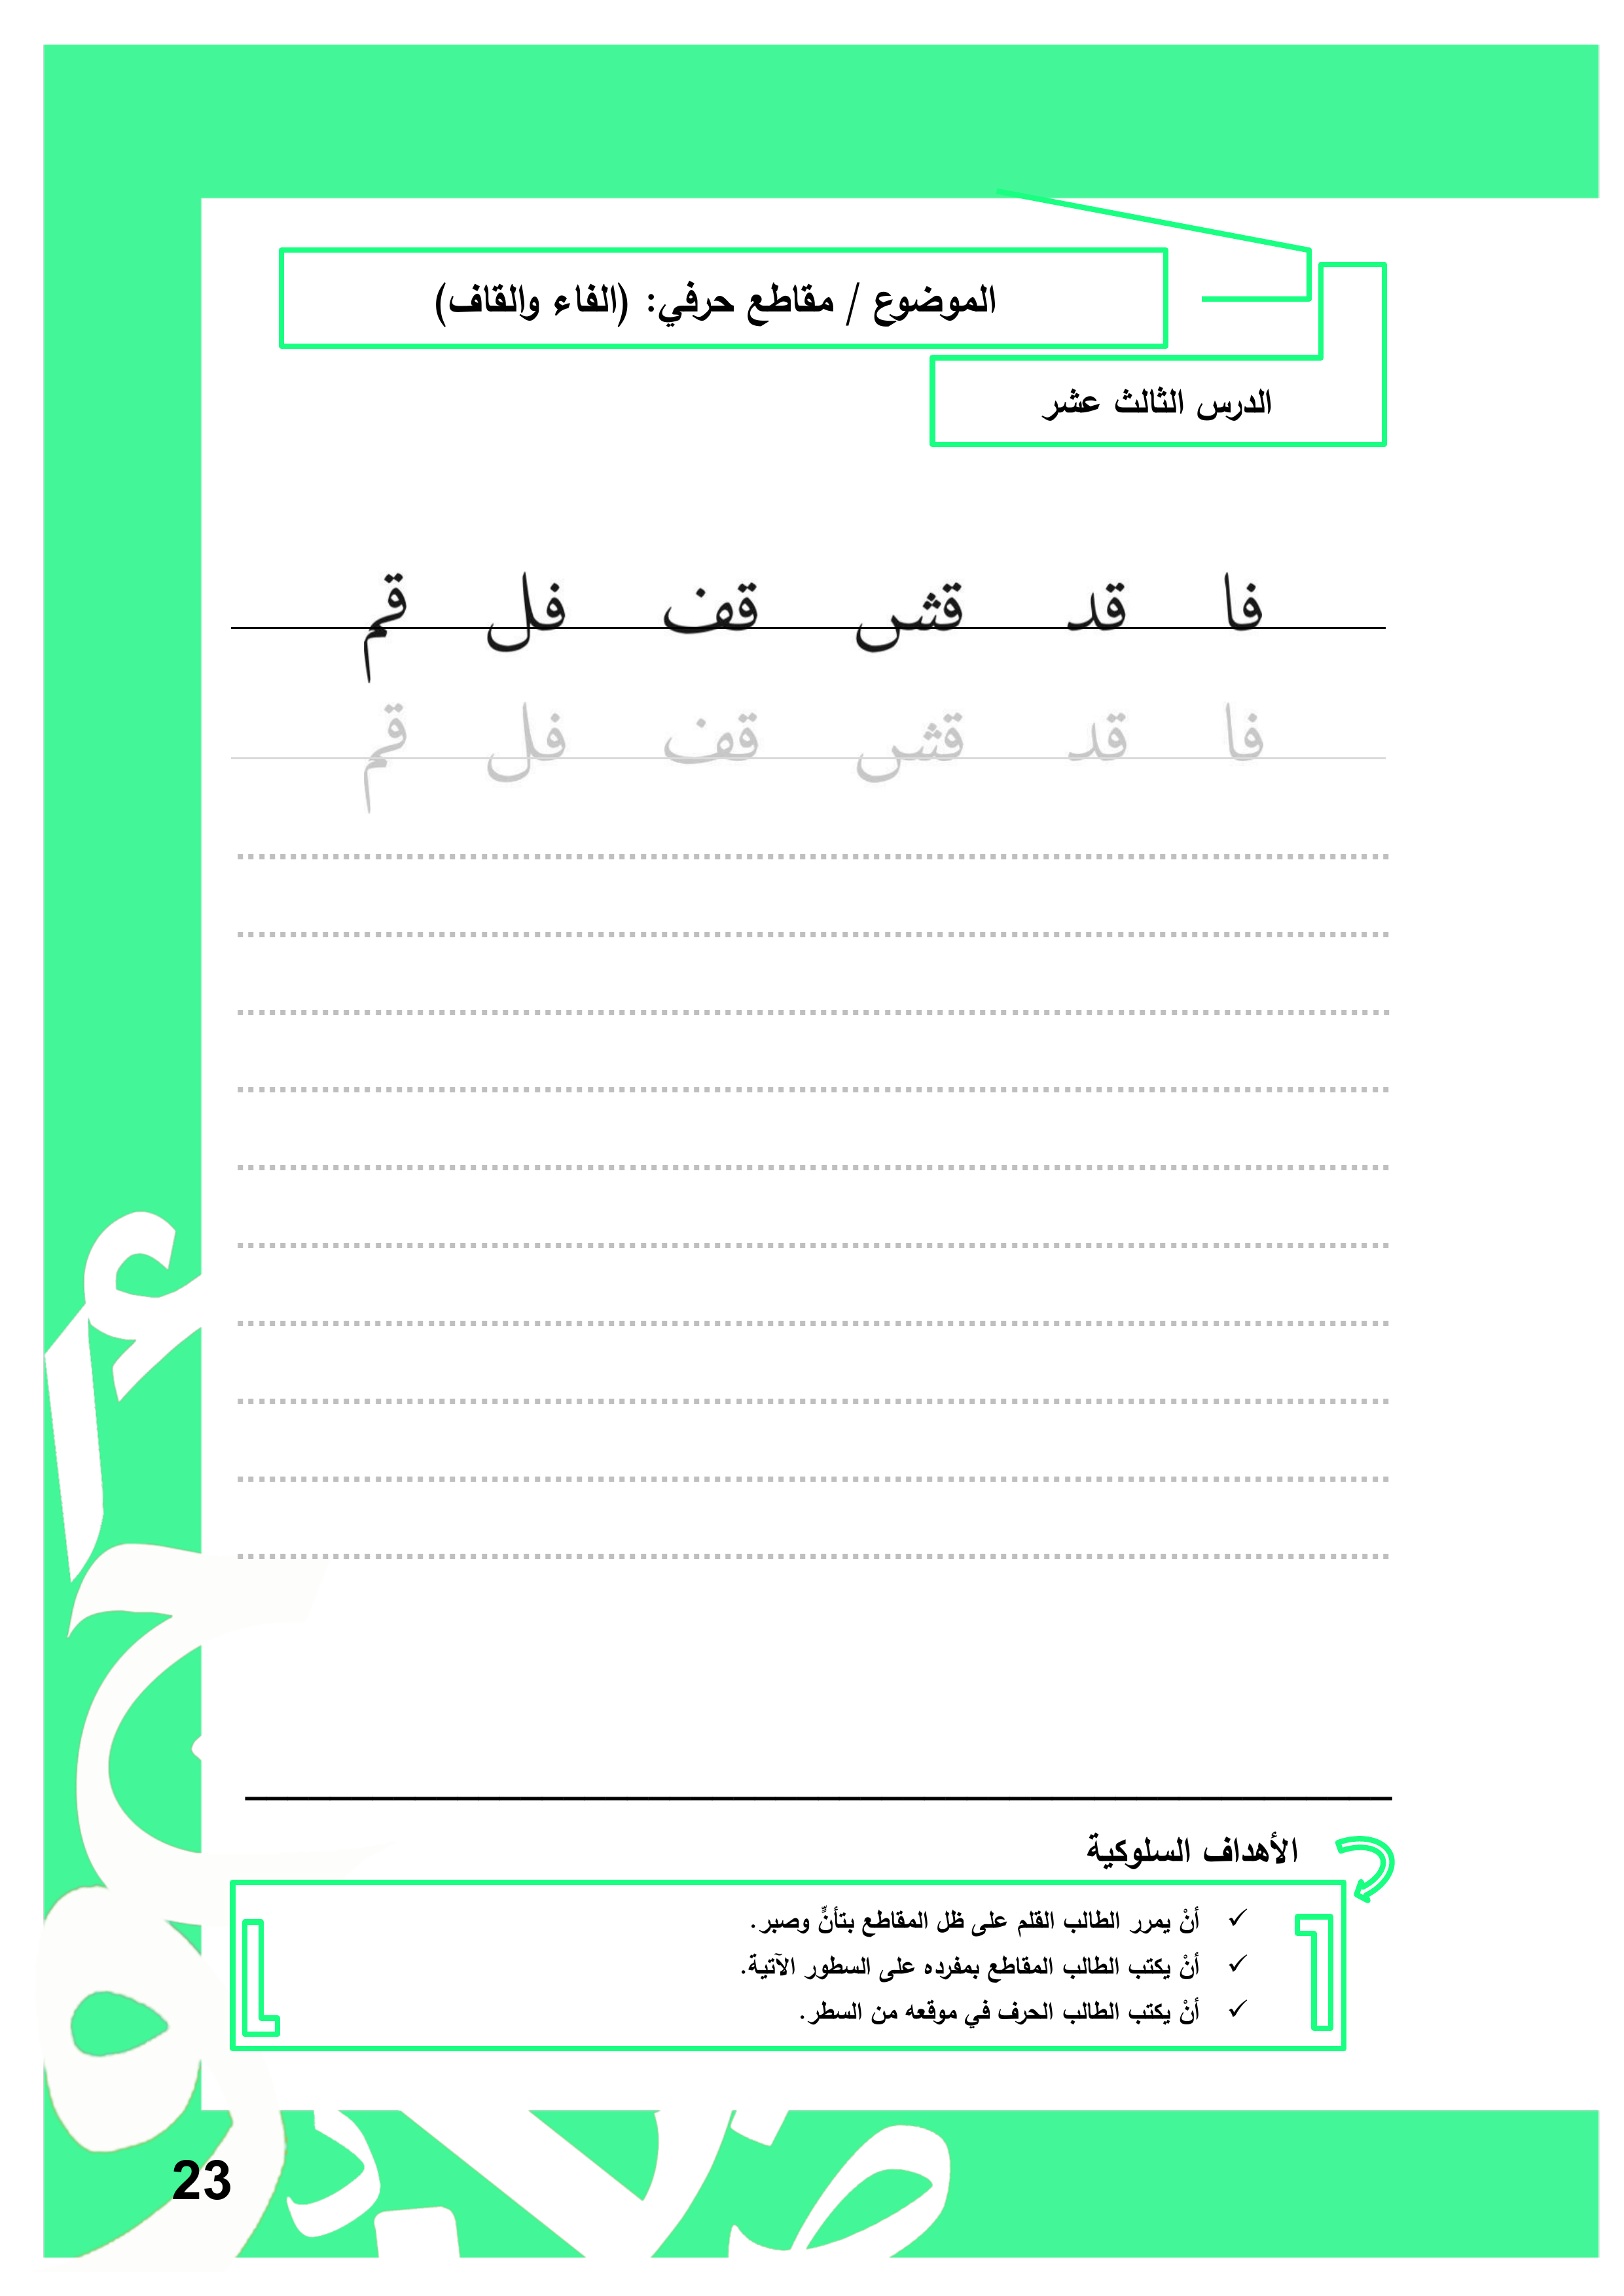 الموضوع / مقاطع حرفي: (الفاء والقاف)
الدرس الثالث عشر
فا قد قش قف فل قم
فا قد قش قف فل قم
الأهداف السلوكية
✓ أنْ يمرر الطالب القلم على ظل المقاطع بتأنٍّ وصبر.
✓ أنْ يكتب الطالب المقاطع بمفرده على السطور الآتية.
✓ أنْ يكتب الطالب الحرف في موقعه من السطر.
23